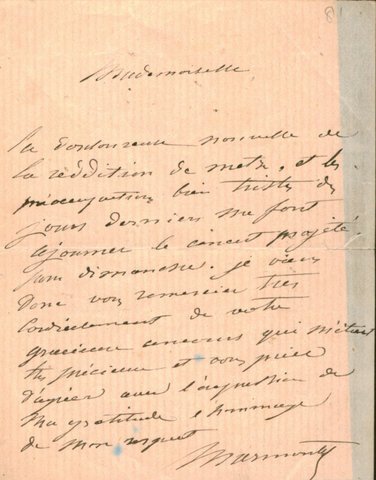 Mademoiselle
La douloureuse nouvelle de
la réddition de metz, et les
préoccupations bien tristes des
jours derniers me font
ajourner le concert projeté
pour dimanche. je viens
donc vous remercier très
cordialement de votre
gracieux concours qui m'était
très précieux et vous prier
d'agréer avec l'expression de
ma gratitude l'hommage
de mon respect
Marmontel